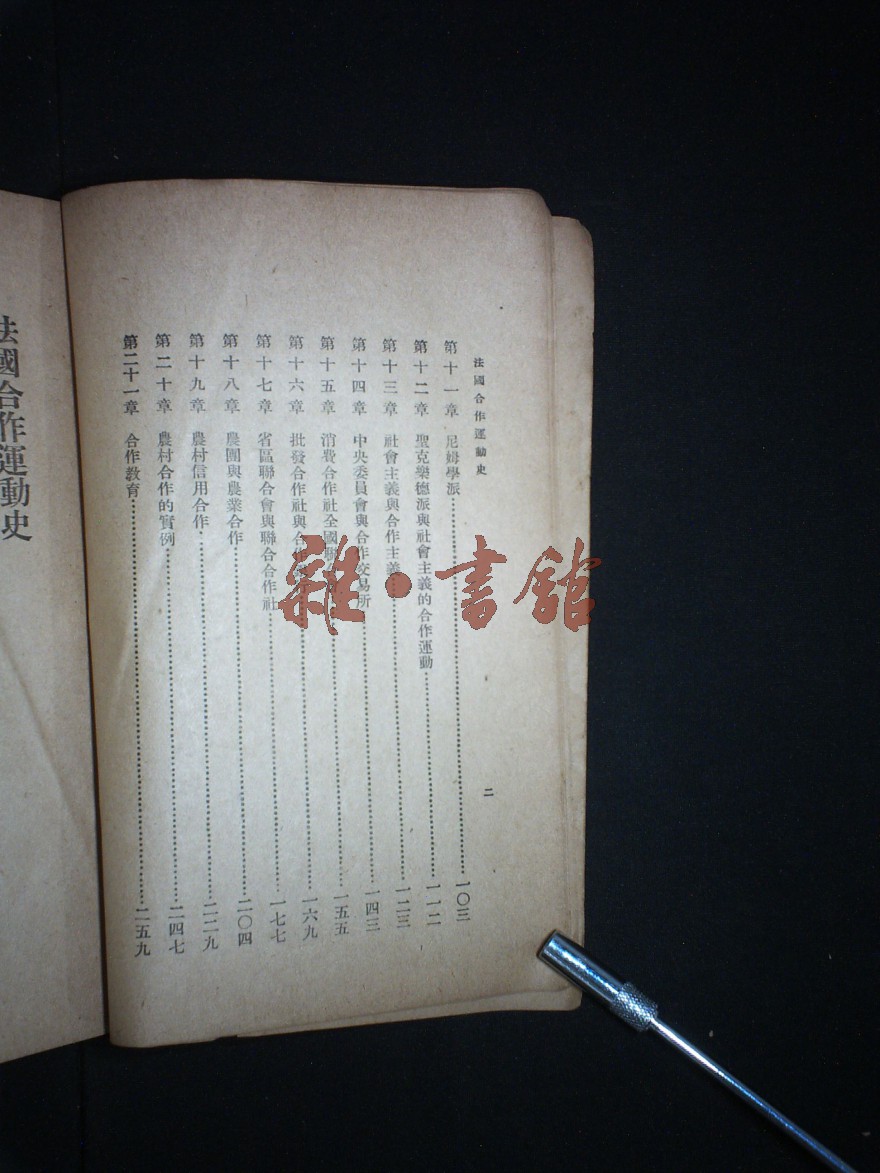 法國合作運動史
二
第十一章 尼姆學派 一〇三
第十二章 聖克樂德派與社會主義的合作運動 一一二
第十三章 社會主義與合作主義 一二三
第十四章 中央委員會與合作交易所 一四三
第十五章 消費合作社全國聯 一五五
第十六章 批發合作社與合作 一六九
第十七章 省區聯合會與聯合合作社 一七七
第十八章 農團與農業合作 二〇四
第十九章 農村信用合作 二二九
第二十章 農村合作的實例 二四七
第二十一章 合作教育 二五九
法國合作運動史
雜·書館